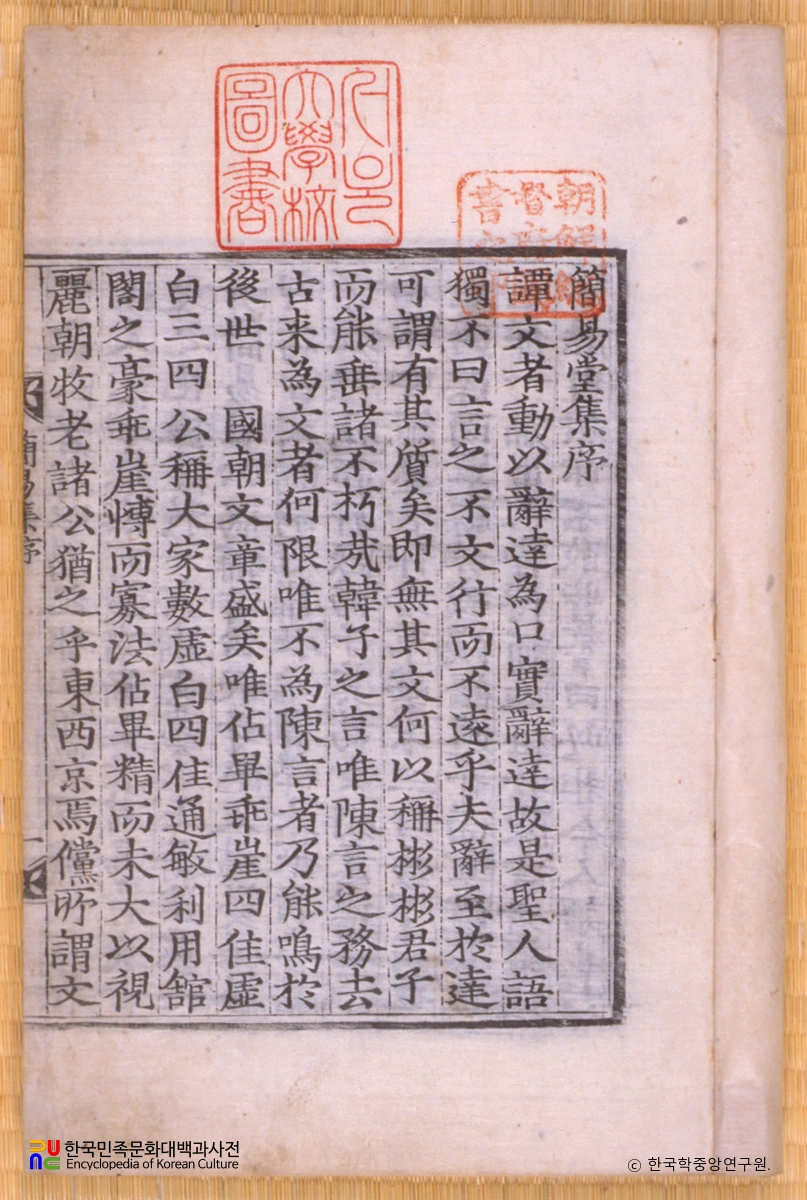 簡易堂集序
譚文者動以辭達為口實辭達故是聖人語
獨不曰言之不文行而不遠乎夫辭至於達
可謂有其質矣即無其文何以稱彬彬君子
而能垂諸不朽哉韓子之言唯陳言之務去
古来為文者何限唯不為陳言者乃能鳴於
後世　國朝文章盛矣唯佔畢乖崖四佳虛
白三四公稱大家數虛白四佳通敏利用舘
閣之豪乖崖愽而寡法佔畢精而未大以視
麗朝牧老諸公猶之乎東西京焉儻所謂文
簡易集序
一
大學校
圖書
朝鮮總
督府圖
書之
한국민족문화대백과사전
Encyclopedia of Korean Culture
ⓒ 한국학중앙연구원.